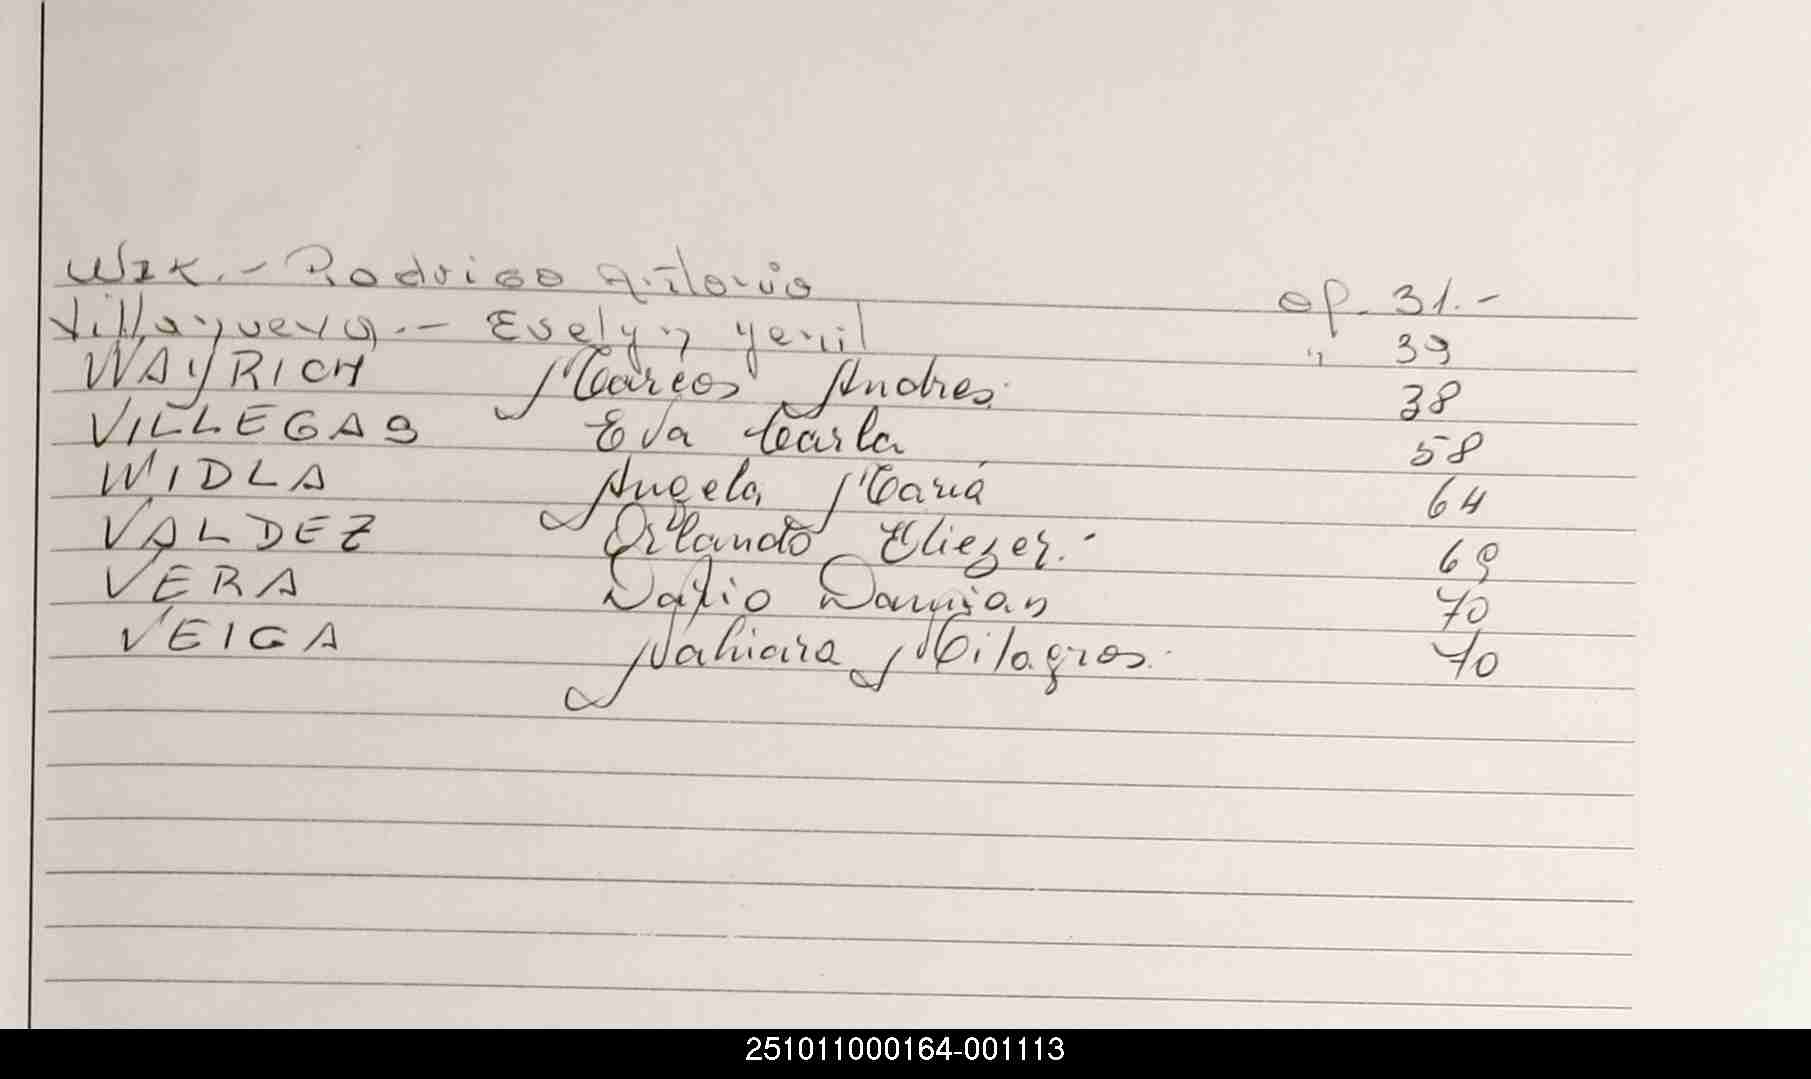 Wzk.- Rodrigo Antonio op. 31.-
Villanueva.- Evelyn Yenil " 39
WAYRICH Marcos Andres. 38
VILLEGAS Eva Carla 58
WIDLA Angela Maria 64
VALDEZ Orlando Eliezer.- 69
VERA Dario Damian 70
VEIGA Nahiara Milagros. 70
251011000164-001113